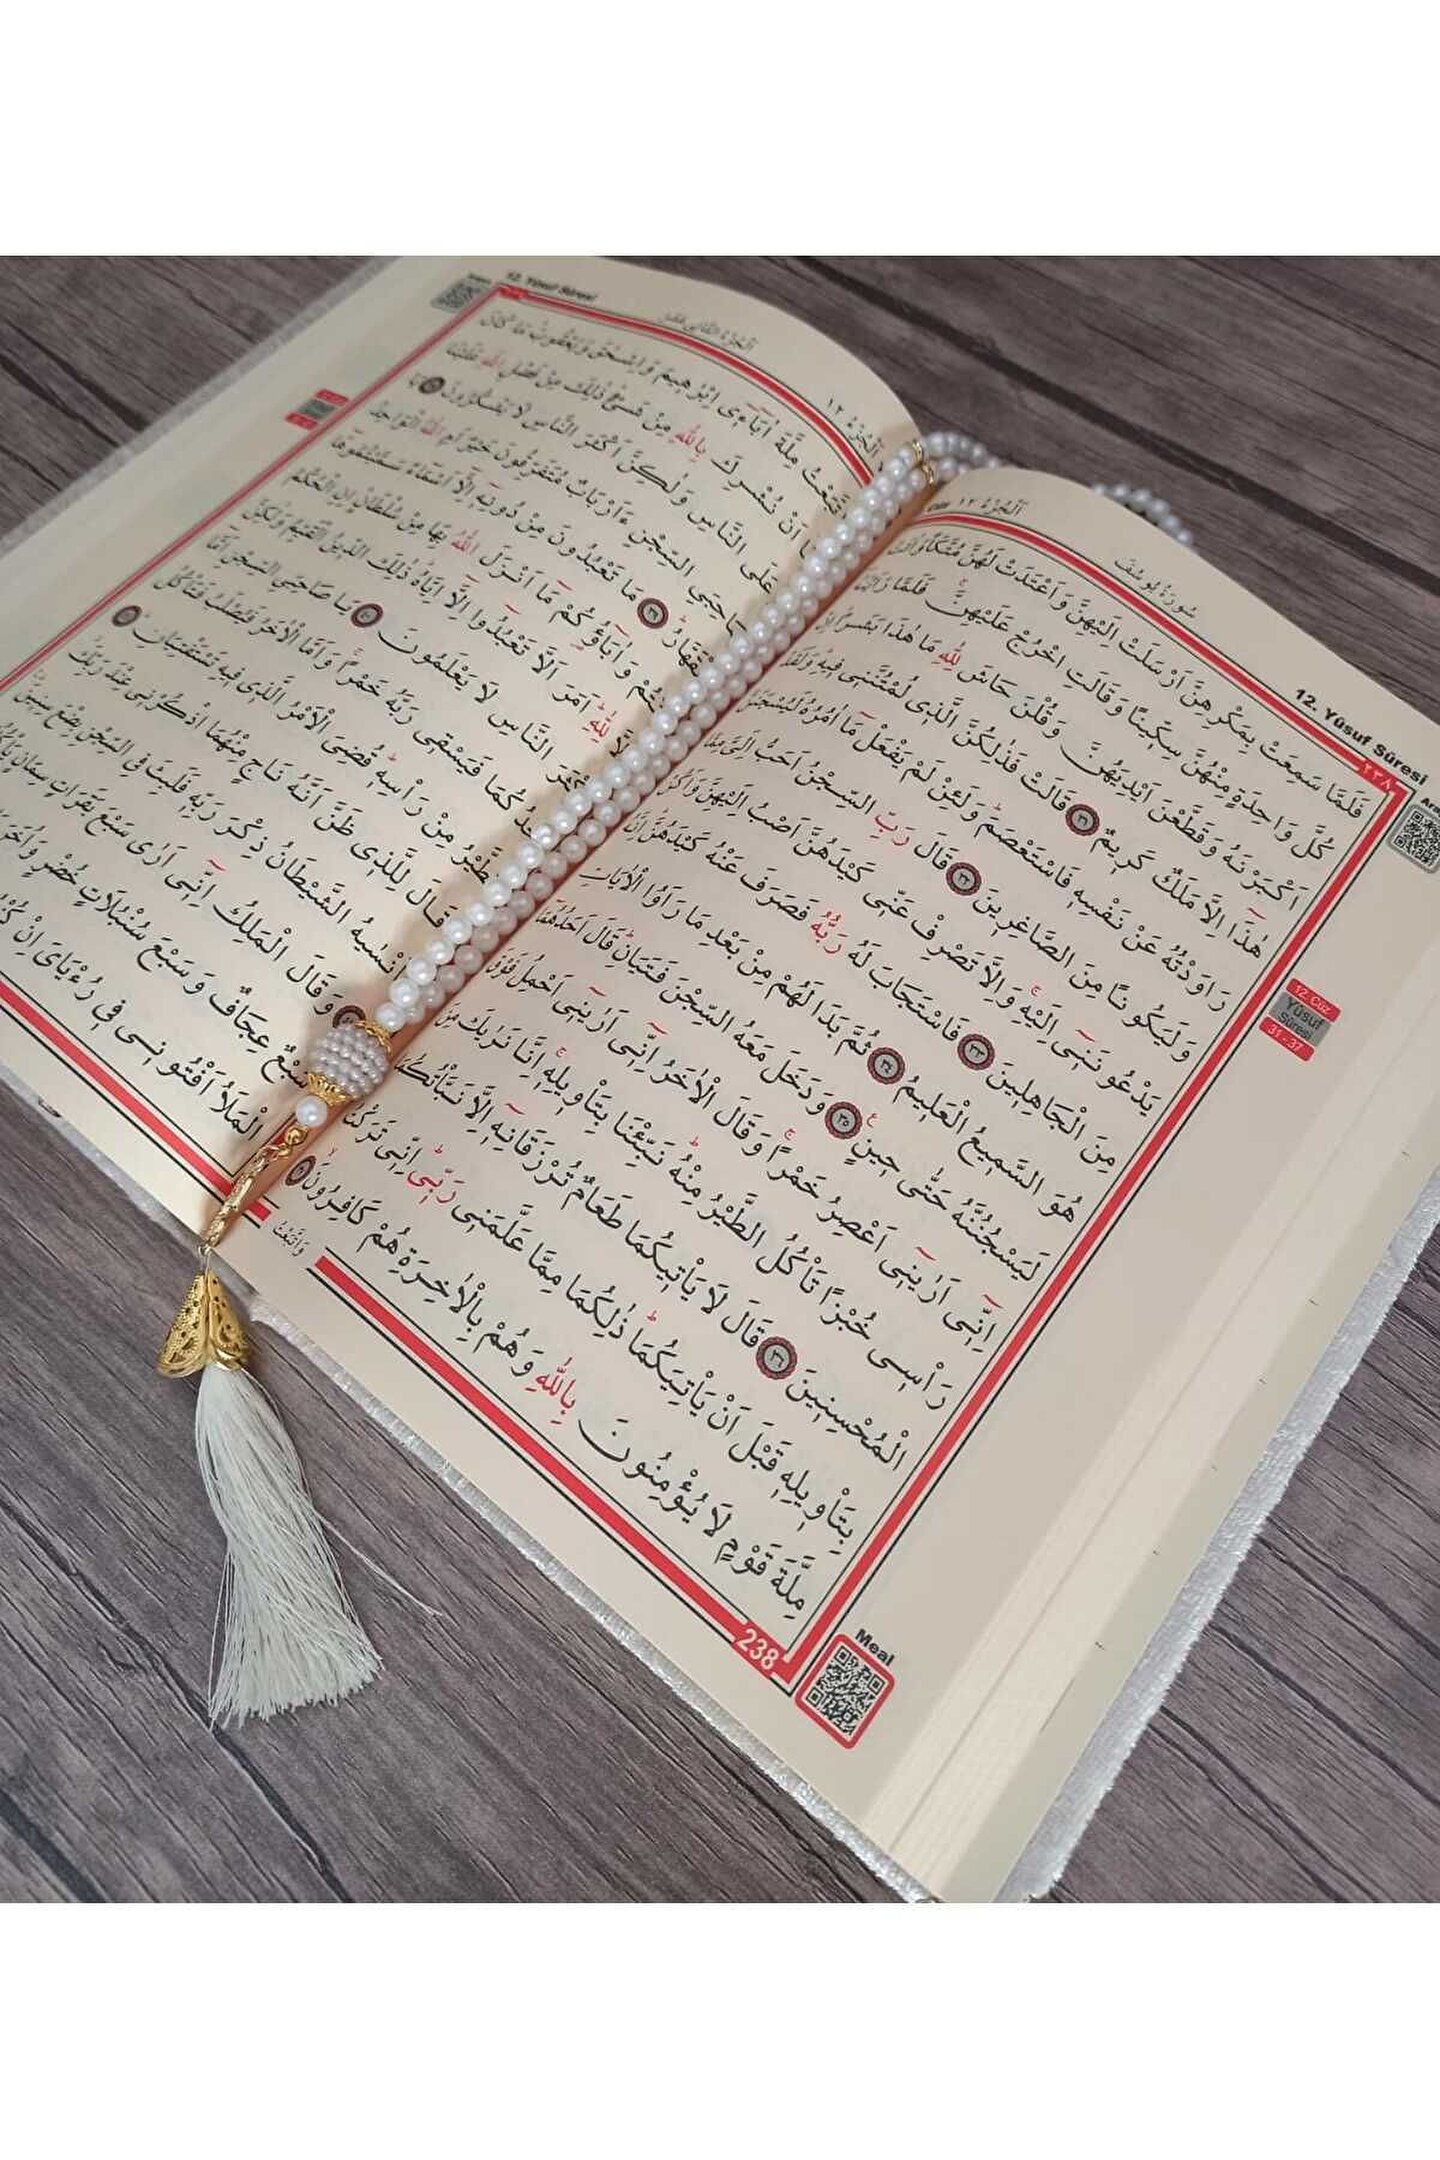 سُورَةُ يُوسُفَ
اَلْجُزْءُ ١٢
12. Yûsuf Sûresi
٢٣٨
فَلَمَّا سَمِعَتْ بِمَكْرِهِنَّ اَرْسَلَتْ اِلَيْهِنَّ وَاَعْتَدَتْ لَهُنَّ مُتَّكَـًٔا وَاٰتَتْ
كُلَّ وَاحِدَةٍ مِنْهُنَّ سِكّ۪ينًا وَقَالَتِ اخْرُجْ عَلَيْهِنَّۚ فَلَمَّا رَاَيْنَهُٓ
اَكْبَرْنَهُ وَقَطَّعْنَ اَيْدِيَهُنَّ وَقُلْنَ حَاشَ لِلّٰهِ مَا هٰذَا بَشَرًاۜ اِنْ
هٰذَٓا اِلَّا مَلَكٌ كَر۪يمٌ ٣١ قَالَتْ فَذٰلِكُنَّ الَّذ۪ي لُمْتُنَّن۪ي ف۪يهِۜ وَلَقَدْ
رَاوَدْتُهُ عَنْ نَفْسِه۪ فَاسْتَعْصَمَۜ وَلَئِنْ لَمْ يَفْعَلْ مَٓا اٰمُرُهُ لَيُسْجَنَنَّ
وَلَيَكُونًا مِنَ الصَّاغِر۪ينَ ٣٢ قَالَ رَبِّ السِّجْنُ اَحَبُّ اِلَيَّ مِمَّا
يَدْعُونَن۪ٓي اِلَيْهِۚ وَاِلَّا تَصْرِفْ عَنّ۪ي كَيْدَهُنَّ اَصْبُ اِلَيْهِنَّ وَاَكُنْ
مِنَ الْجَاهِل۪ينَ ٣٣ فَاسْتَجَابَ لَهُ رَبُّهُ فَصَرَفَ عَنْهُ كَيْدَهُنَّۜ اِنَّهُ
هُوَ السَّم۪يعُ الْعَل۪يمُ ٣٤ ثُمَّ بَدَا لَهُمْ مِنْ بَعْدِ مَا رَاَوُا الْاٰيَاتِ
لَيَسْجُنُنَّهُ حَتّٰى ح۪ينٍ۟ ٣٥ وَدَخَلَ مَعَهُ السِّجْنَ فَتَيَانِۜ قَالَ اَحَدُهُمَٓا
اِنّ۪ٓي اَرٰين۪ٓي اَعْصِرُ خَمْرًاۚ وَقَالَ الْاٰخَرُ اِنّ۪ٓي اَرٰين۪ٓي اَحْمِلُ فَوْقَ
رَاْس۪ي خُبْزًا تَاْكُلُ الطَّيْرُ مِنْهُۜ نَبِّئْنَا بِتَاْو۪يلِه۪ۚ اِنَّا نَرٰيكَ مِنَ
الْمُحْسِن۪ينَ ٣٦ قَالَ لَا يَاْت۪يكُمَا طَعَامٌ تُرْزَقَانِه۪ٓ اِلَّا نَبَّاْتُكُمَا
بِتَاْو۪يلِه۪ قَبْلَ اَنْ يَاْتِيَكُمَاۜ ذٰلِكُمَا مِمَّا عَلَّمَن۪ي رَبّ۪يۜ اِنّ۪ي تَرَكْتُ
مِلَّةَ قَوْمٍ لَا يُؤْمِنُونَ بِاللّٰهِ وَهُمْ بِالْاٰخِرَةِ هُمْ كَافِرُونَۙ
وَاتَّبَعْتُ
12. Cüz
Yûsuf
Sûresi
31 - 37
238
Meal
اَلْجُزْءُ ١٢
اَلْجُزْءُ الثَّانِي عَشَرَ
12. Yûsuf Sûresi
مِلَّةَ اٰبَٓاء۪ٓي اِبْرٰه۪يمَ وَاِسْحٰقَ وَيَعْقُوبَۜ مَا كَانَ
اَنْ نُشْرِكَ بِاللّٰهِ مِنْ شَيْءٍۜ ذٰلِكَ مِنْ فَضْلِ اللّٰهِ عَلَيْنَا
عَلَى النَّاسِ وَلٰكِنَّ اَكْثَرَ النَّاسِ لَا يَشْكُرُونَ يَا
السِّجْنِ ءَاَرْبَابٌ مُتَفَرِّقُونَ خَيْرٌ اَمِ اللّٰهُ الْوَاحِدُ
٣٩ مَا تَعْبُدُونَ مِنْ دُونِه۪ٓ اِلَّٓا اَسْمَٓاءً سَمَّيْتُمُوهَٓا
وَاٰبَٓاؤُ۬كُمْ مَٓا اَنْزَلَ اللّٰهُ بِهَا مِنْ سُلْطَانٍۜ اِنِ الْحُكْمُ
لِلّٰهِۜ اَمَرَ اَلَّا تَعْبُدُٓوا اِلَّٓا اِيَّاهُۜ ذٰلِكَ الدّ۪ينُ الْقَيِّمُ وَلٰكِنَّ
النَّاسِ لَا يَعْلَمُونَ ٤٠ يَا صَاحِبَيِ السِّجْنِ اَمَّٓا
فَيَسْق۪ي رَبَّهُ خَمْرًاۚ وَاَمَّا الْاٰخَرُ فَيُصْلَبُ فَتَاْكُلُ
مِنْ رَاْسِه۪ۜ قُضِيَ الْاَمْرُ الَّذ۪ي ف۪يهِ تَسْتَفْتِيَانِۜ
قَالَ لِلَّذ۪ي ظَنَّ اَنَّهُ نَاجٍ مِنْهُمَا اذْكُرْن۪ي عِنْدَ رَبِّكَۘ
الشَّيْطَانُ ذِكْرَ رَبِّه۪ فَلَبِثَ فِي السِّجْنِ بِضْعَ سِن۪ينَ۟
وَقَالَ الْمَلِكُ اِنّ۪ٓي اَرٰى سَبْعَ بَقَرَاتٍ سِمَانٍ
سَبْعٌ عِجَافٌ وَسَبْعَ سُنْبُلَاتٍ خُضْرٍ وَاُخَرَ
الْمَلَاُ اَفْتُون۪ي ف۪ي رُءْيَايَ اِنْ